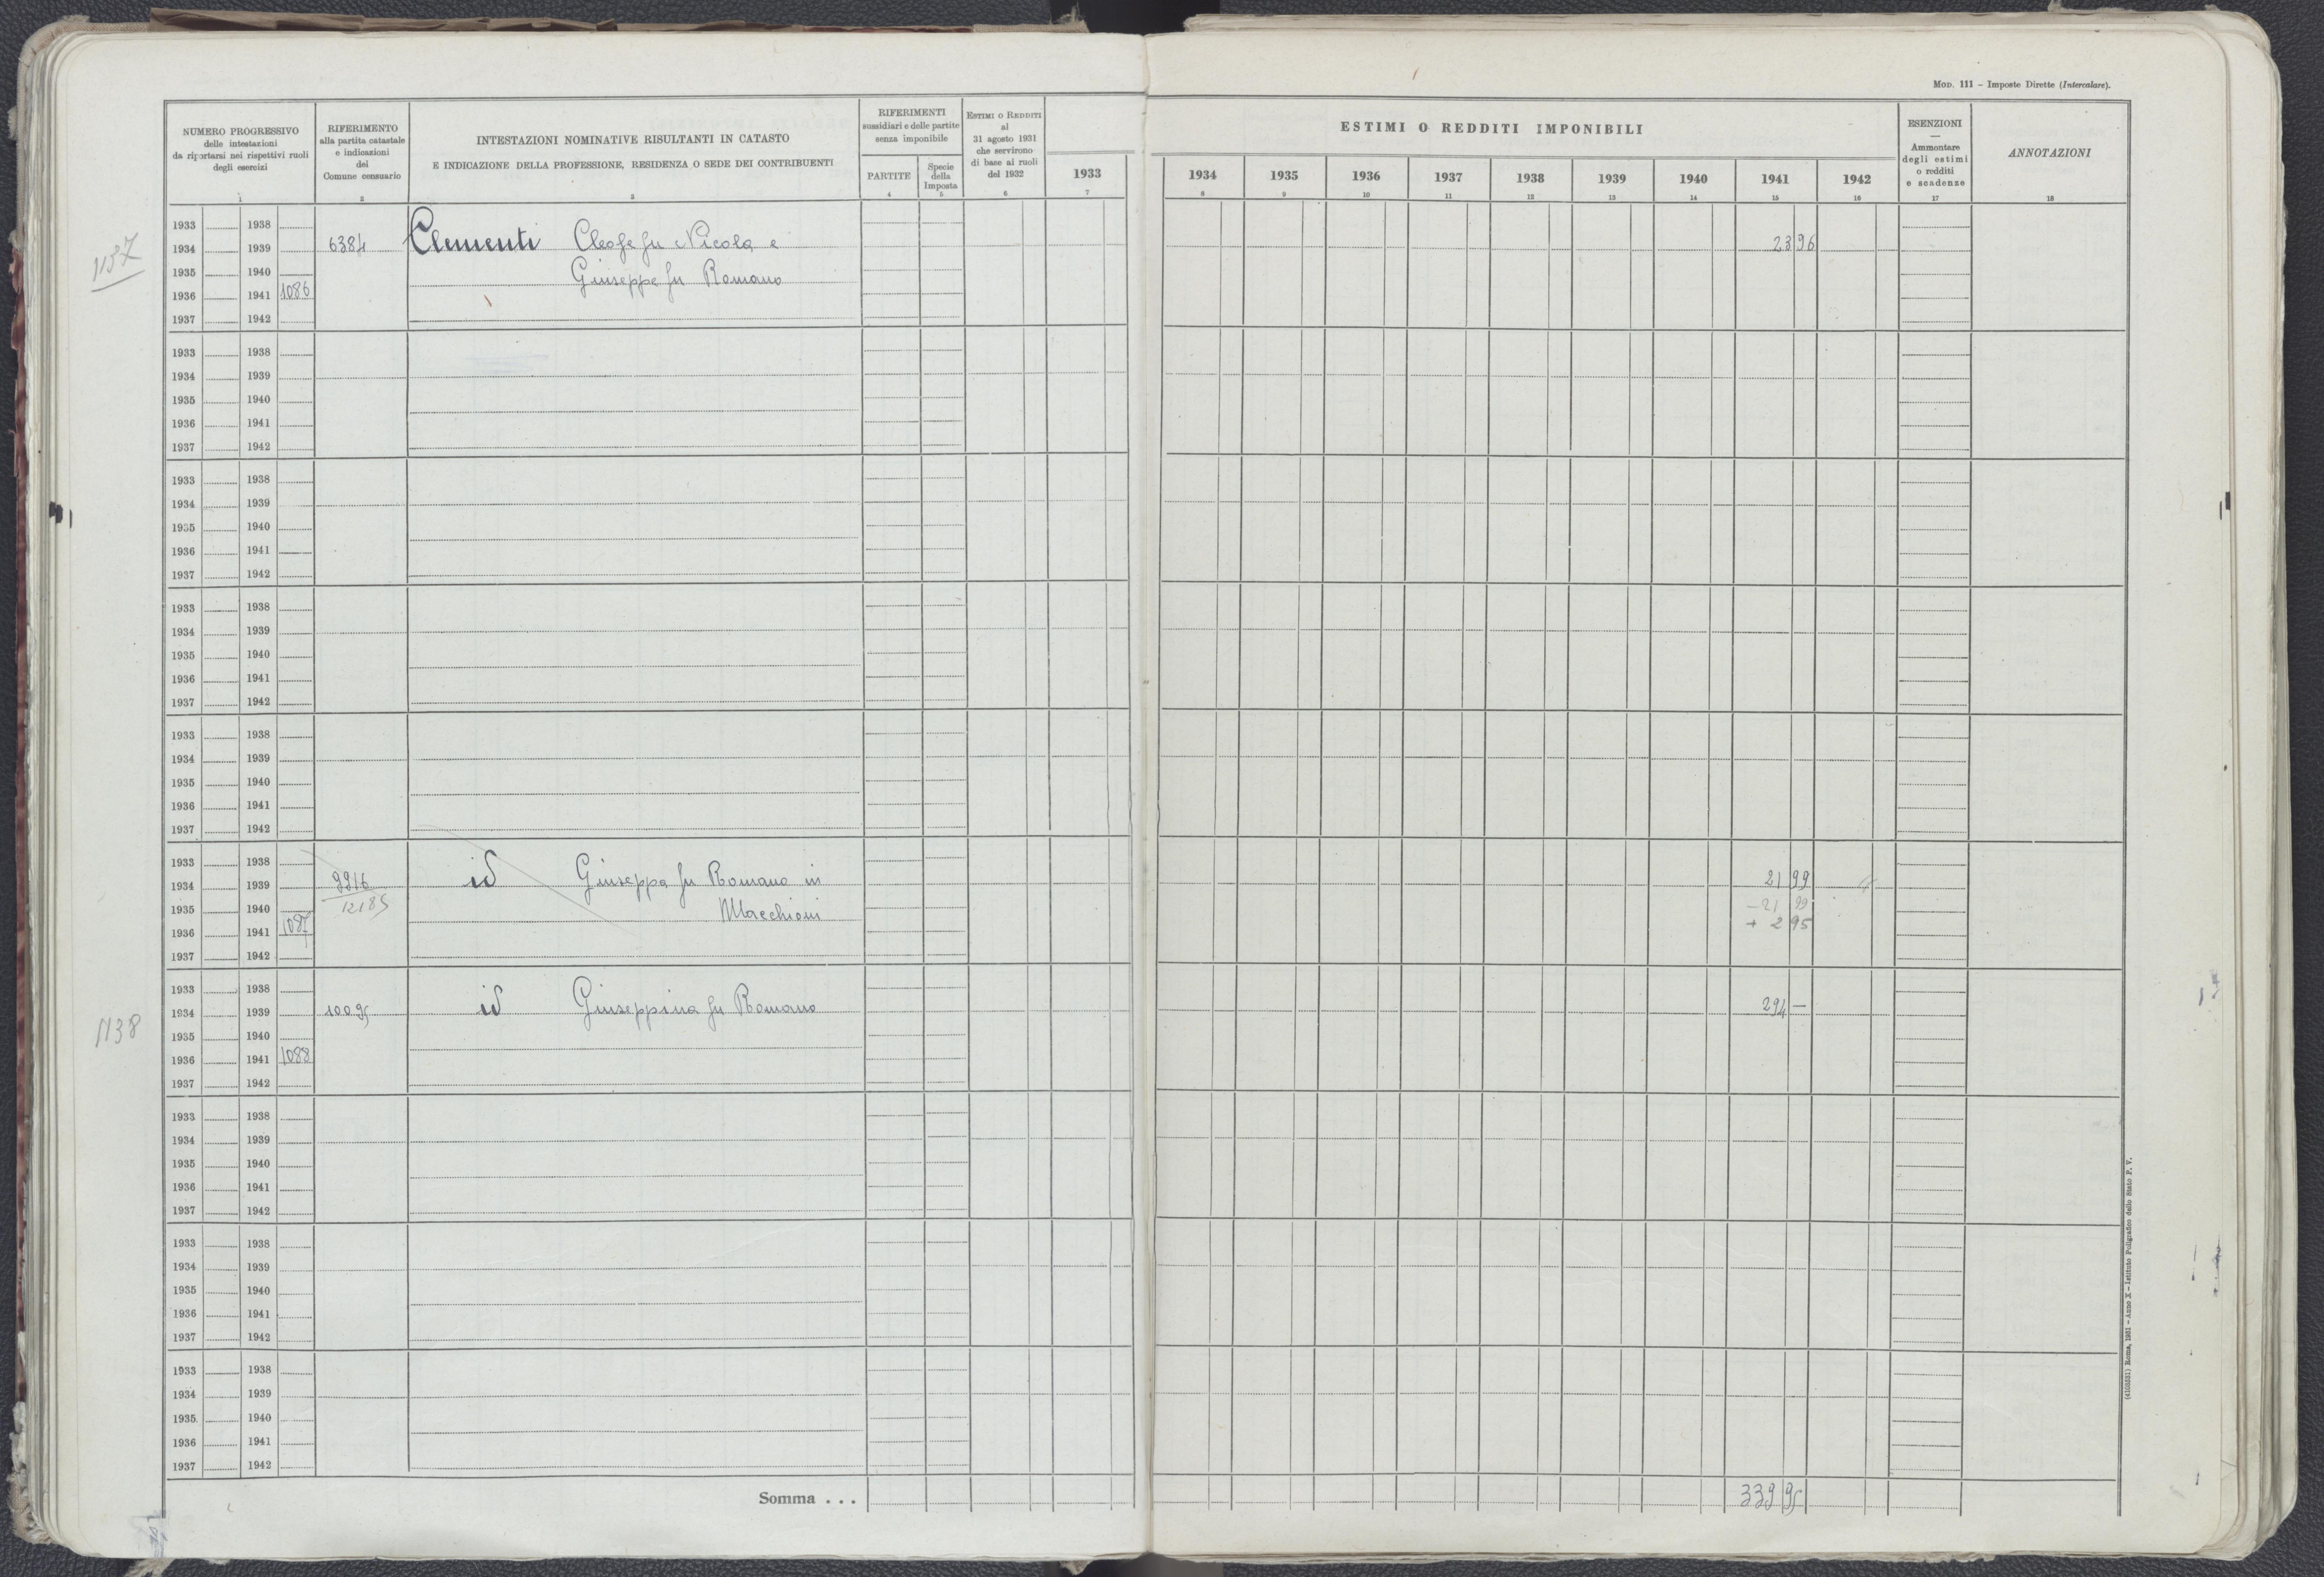 MOD. 111 – Imposte Dirette (Intercalare).
NUMERO PROGRESSIVO
delle intestazioni
da riportarsi nei rispettivi ruoli
degli esercizi
1
RIFERIMENTO
alla partita catastale
e indicazioni
dei
Comune censuario
2
INTESTAZIONI NOMINATIVE RISULTANTI IN CATASTO
E INDICAZIONE DELLA PROFESSIONE, RESIDENZA O SEDE DEI CONTRIBUENTI
3
RIFERIMENTI
sussidiari e delle partite
senza imponibile
PARTITE
4
Specie
della
Imposta
5
ESTIMI O REDDITI
al
31 agosto 1931
che servirono
di base ai ruoli
del 1932
6
1933
7
ESTIMI O REDDITI IMPONIBILI
1934 1935 1936 1937 1938 1939 1940 1941 1942
8 9 10 11 12 13 14 15 16
ESENZIONI
—
Ammontare
degli estimi
o redditi
e scadenze
17
ANNOTAZIONI
18
1137
1933 1938
1934 1939 6384 Clementi Cleofe fu Nicola e 23 96
1935 1940 Giuseppe fu Romano
1936 1941 1086
1937 1942
1933 1938
1934 1939
1935 1940
1936 1941
1937 1942
1933 1938
1934 1939
1935 1940
1936 1941
1937 1942
1933 1938
1934 1939
1935 1940
1936 1941
1937 1942
1933 1938
1934 1939
1935 1940
1936 1941
1937 1942
1933 1938
1934 1939 9916 id Giuseppa fu Romano in 21 99
1935 1940 12185 Macchioni – 21 99
1936 1941 1087 + 2 95
1937 1942
1933 1938
1934 1939 10095 id Giuseppina fu Romano 294 —
1138
1935 1940
1936 1941 1088
1937 1942
1933 1938
1934 1939
1935 1940
1936 1941
1937 1942
1933 1938
1934 1939
1935 1940
1936 1941
1937 1942
1933 1938
1934 1939
1935 1940
1936 1941
1937 1942
Somma . . . 339 95
(4103531) Roma, 1931 – Anno X – Istituto Poligrafico dello Stato P. V.